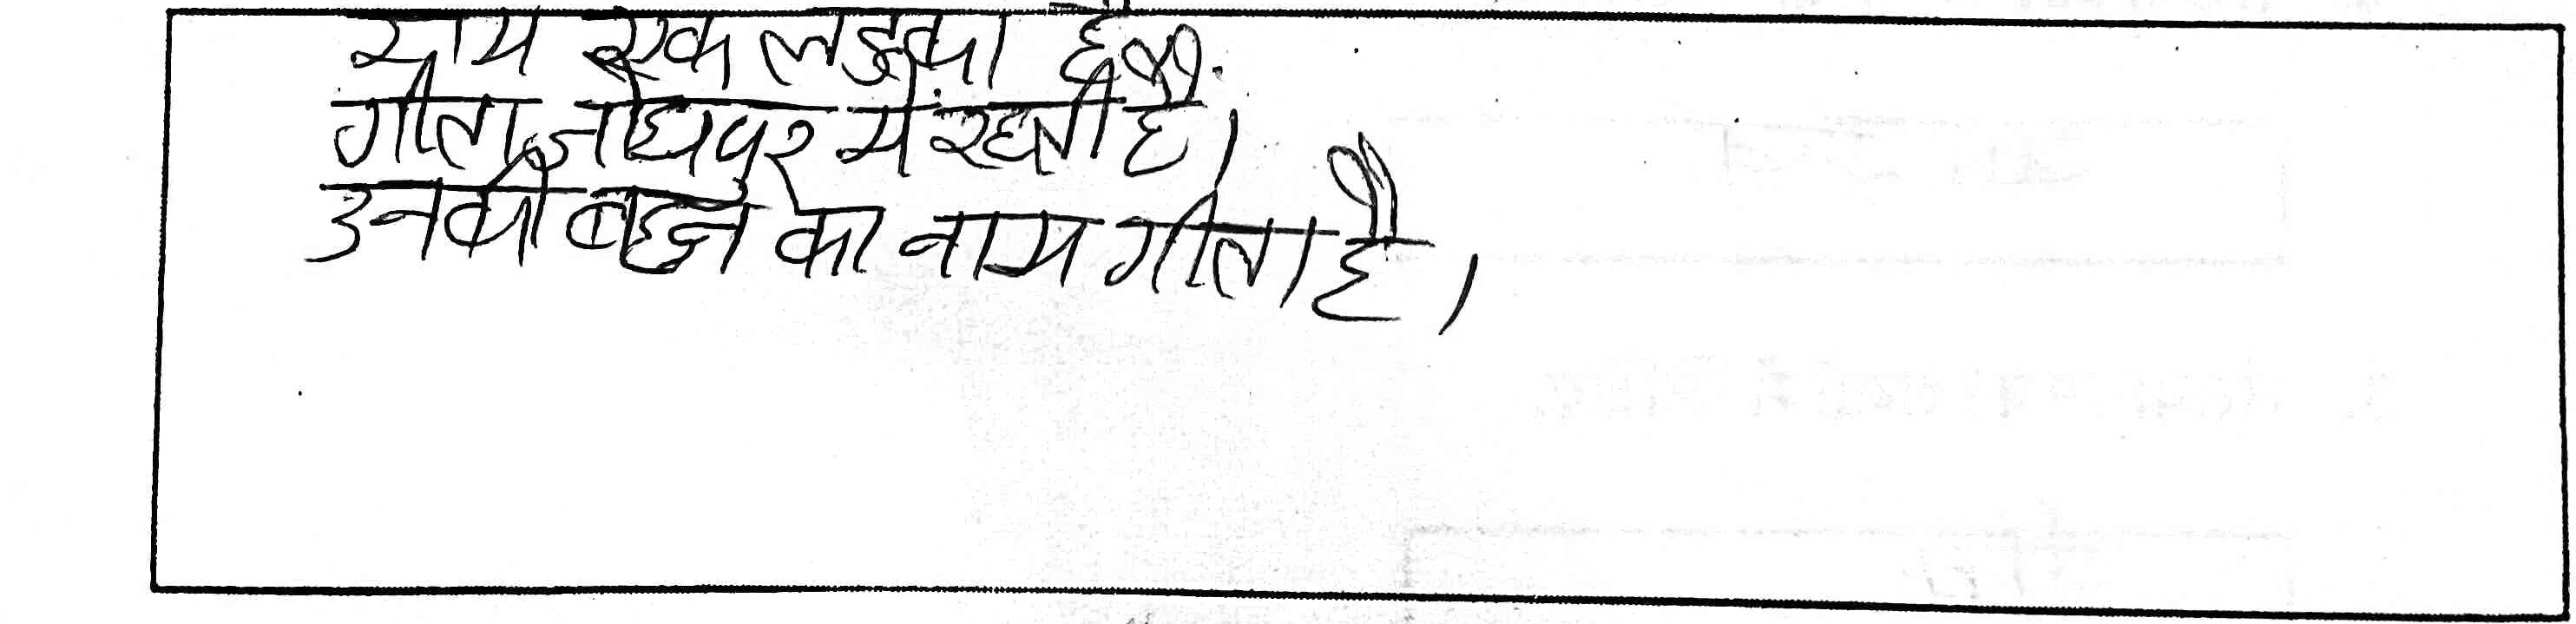 राम एक लडका है
गीता जोधपुर में रहती है।
उनकी बहन का नाम गीता है।